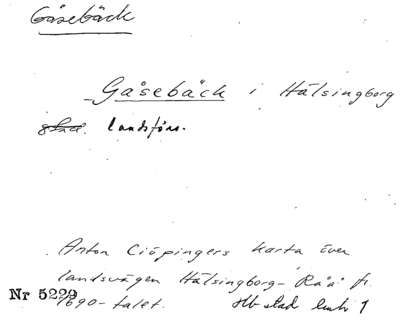 Gåsebäck
Gåsebäck i Hälsingborg
landsförs.
Anton Ciöpingers karta över
landsvägen Hälsingborg - Råå fr.
1690-talet.
Nr 5229